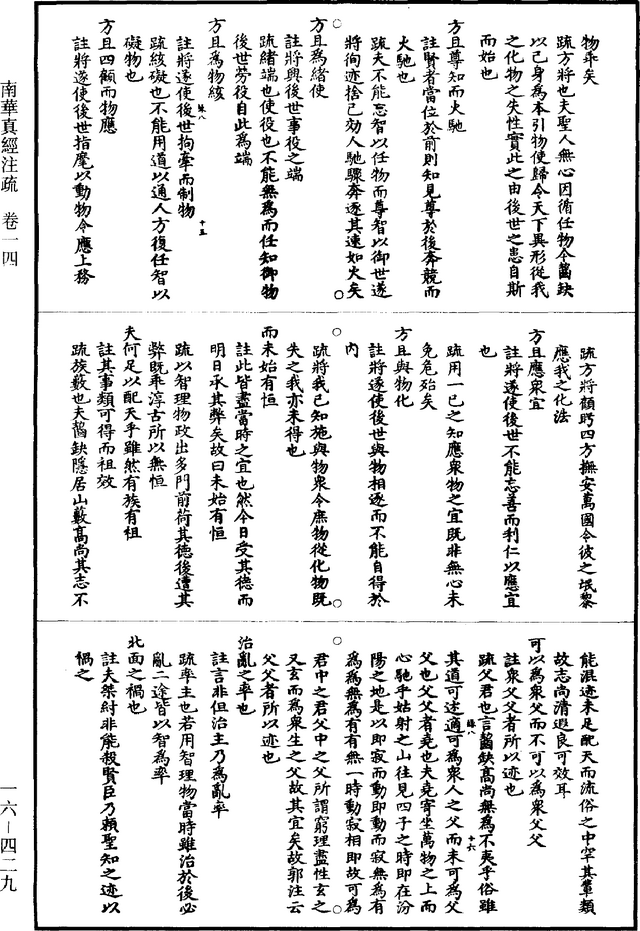 物乖矣
疏方將也夫聖人無心因循任物今齧缺
以己身為本引物使歸令天下異形從我
之化物之失性實此之由後世之患自斯
而始也
方且尊知而火馳
註賢者當位於前則知見尊於後奔競而
火馳也
疏夫不能忘智以任物而尊智以御世遂
將徇迹捨己効人馳驟奔逐其速如火矣
方且為緒使
註將興後世事役之端
疏緒端也使役也不能無為而任知御物
後世勞役自此為端
方且為物絯
註將遂使後世拘牽而制物
疏絯礙也不能用道以通人方復任智以
礙物也
方且四顧而物應
註將遂使後世指麾以動物令應上務
疏方將顧眄四方撫安萬國令彼之氓黎
應我之化法
方且應衆宜
註將遂使後世不能忘善而利仁以應宜
也
疏用一己之知應衆物之宜既非無心未
免危殆矣
方且與物化
註將遂使後世與物相逐而不能自得於
內
疏將我已知施與物衆令庶物從化物既
失之我亦未得也
而未始有恒
註此皆盡當時之宜也然今日受其德而
明日承其弊矣故曰未始有恒
疏以智理物政出多門前荷其德後遭其
弊既乖淳古所以無恒
夫何足以配天乎雖然有族有祖
註其事類可得而祖效
疏族藪也夫齧缺隱居山藪高尚其志不
能混迹未足配天而流俗之中罕其輩類
故志尚清遐良可效耳
可以為衆父而不可以為衆父父
註衆父父者所以迹也
疏父君也言齧缺高尚無為不夷乎俗雖
其道可述適可為衆人之父而未可為父
父也父父者堯也夫堯寄坐萬物之上而
心馳乎姑射之山往見四子之時即在汾
陽之地是以即寂而動即動而寂無為有
為為無為有有無一時動寂相即故可為
君中之君父中之父所謂窮理盡性玄之
又玄而為衆生之父故其宜矣故郭注云
父父者所以迹也
治亂之率也
註言非但治主乃為亂率
疏率主也若用智理物當時雖治於後必
亂二途皆以智為率
北面之禍也
註夫桀紂非能殺賢臣乃賴聖知之迹以
禍之
南華真經注疏 卷一四
一六－四二九